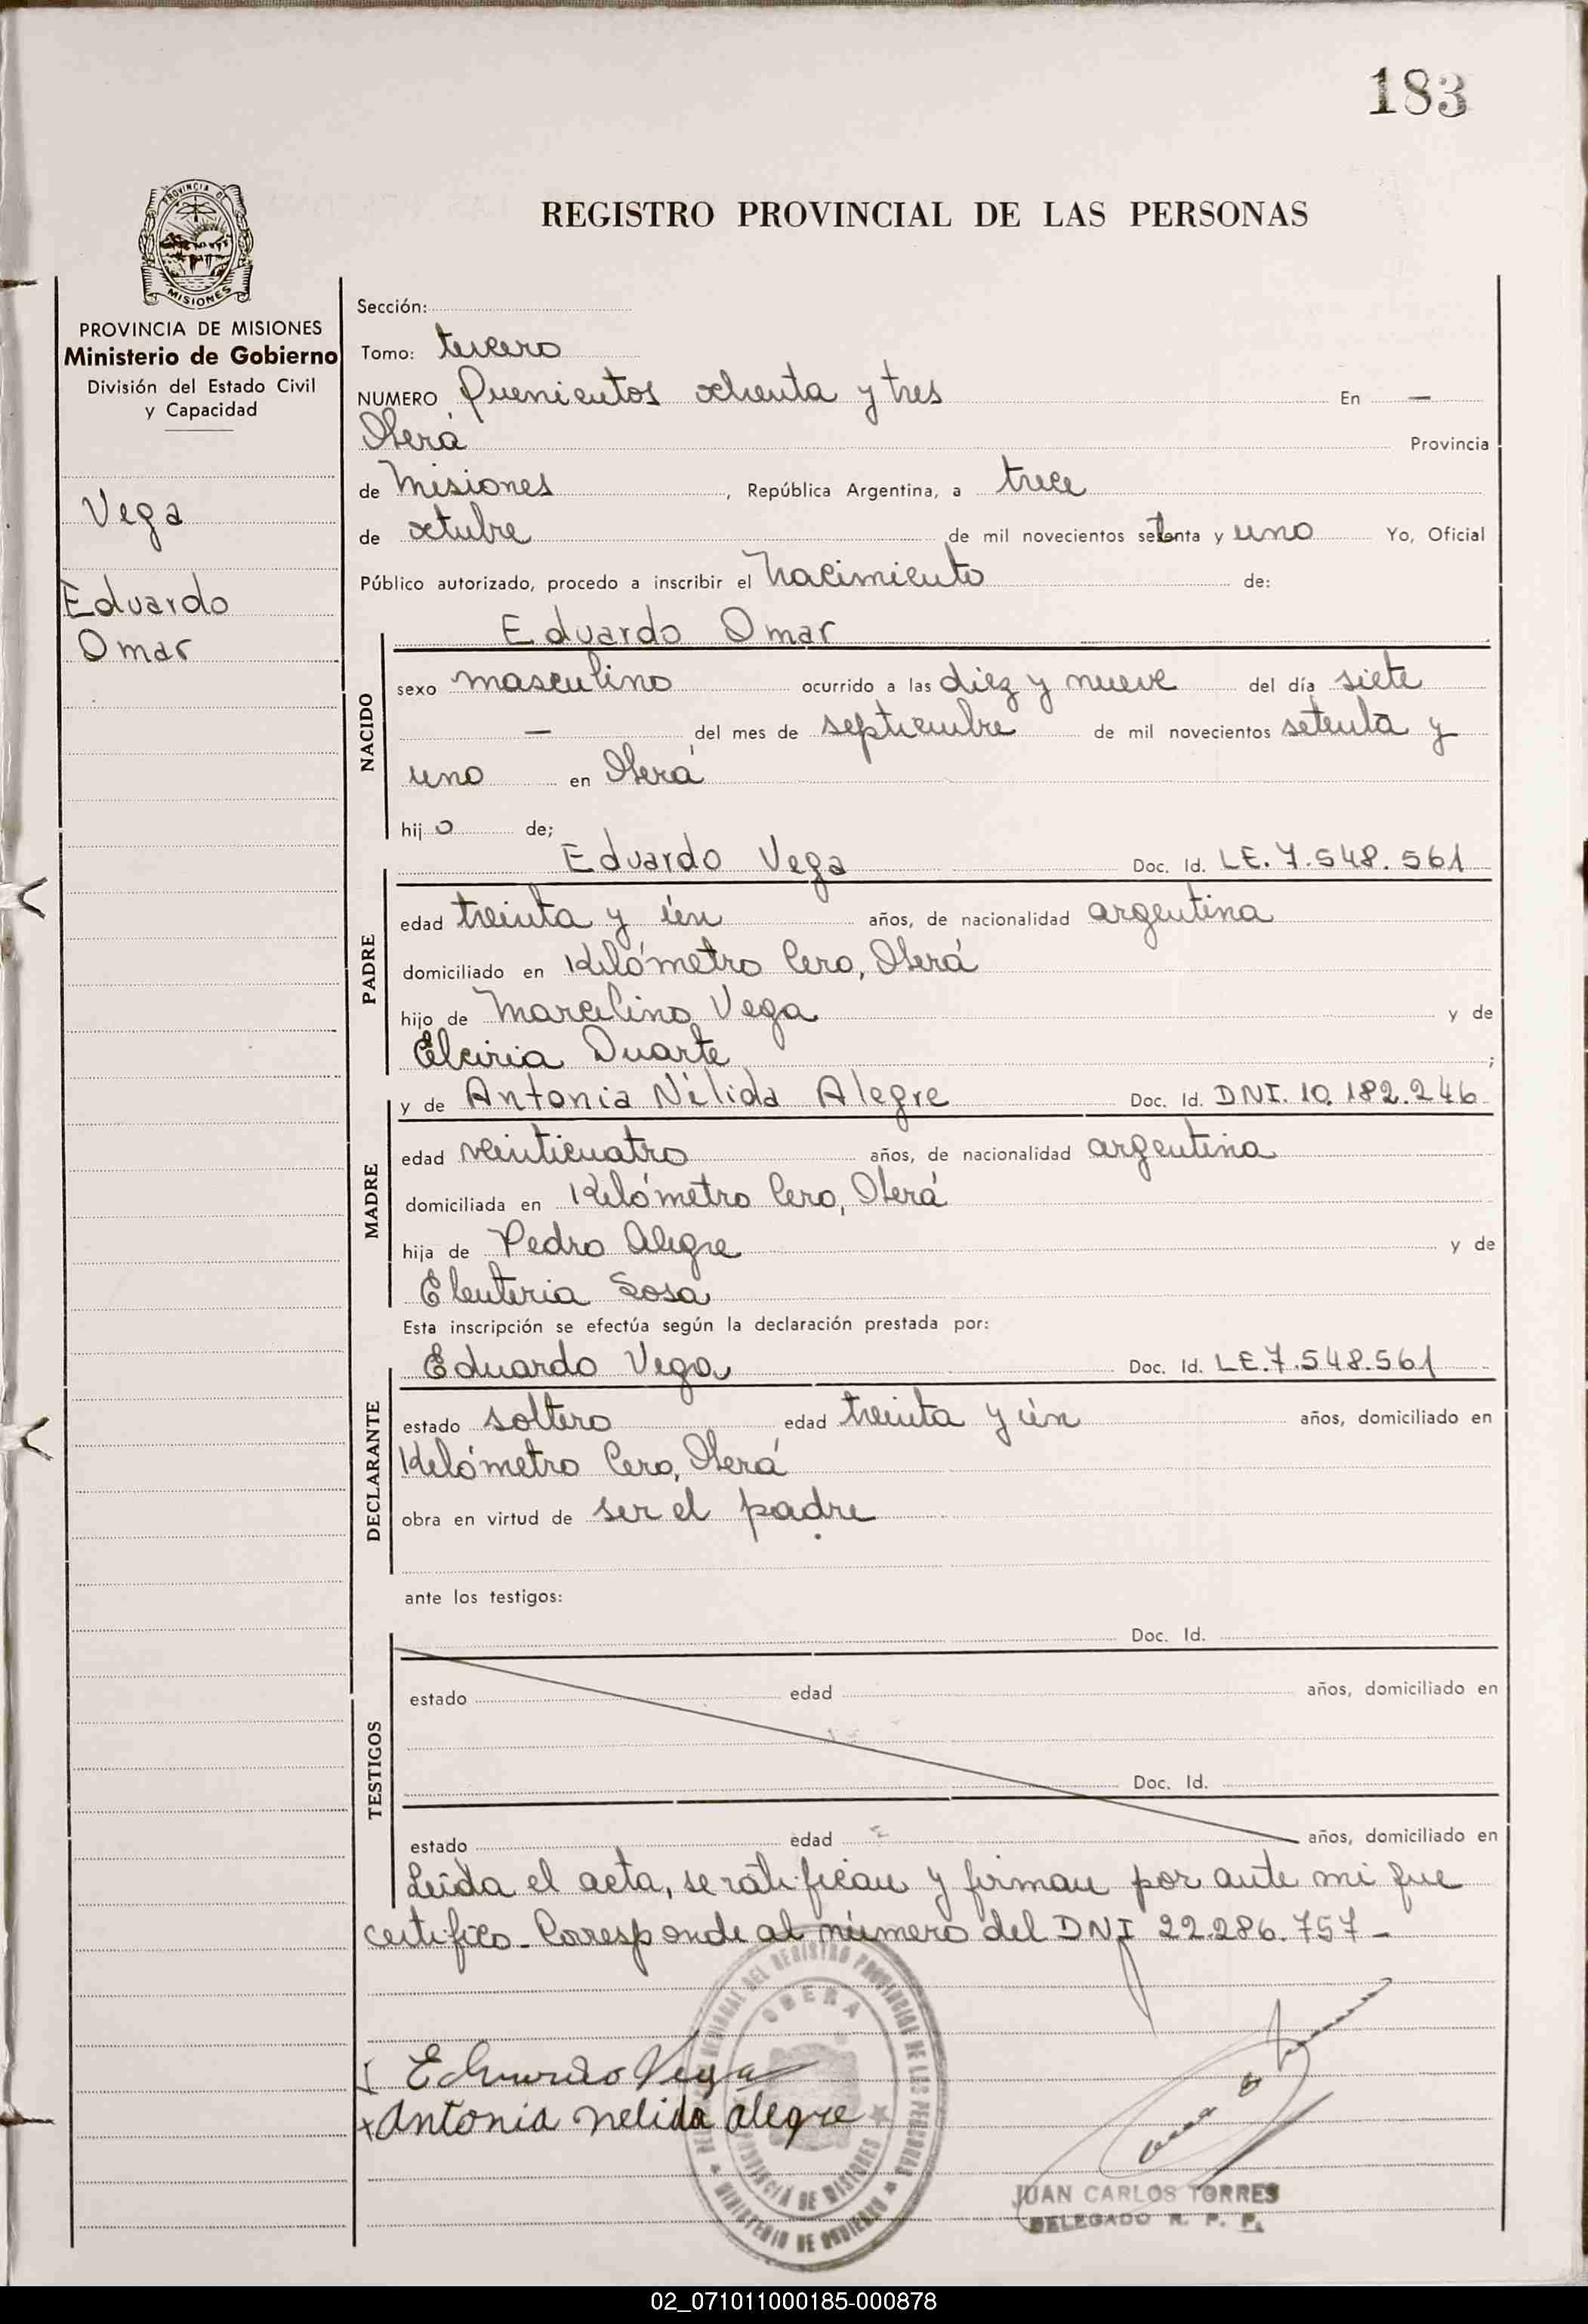 183
PROVINCIA DE
MISIONES
REGISTRO PROVINCIAL DE LAS PERSONAS
PROVINCIA DE MISIONES
Ministerio de Gobierno
División del Estado Civil
y Capacidad
Vega
Eduardo
Omar
Sección:
Tomo: tercero
NUMERO Quinientos ochenta y tres En —
Oberá Provincia
de Misiones, República Argentina, a trece
de octubre de mil novecientos setenta y uno Yo, Oficial
Público autorizado, procedo a inscribir el nacimiento de:
Eduardo Omar
NACIDO
sexo masculino ocurrido a las diez y nueve del día siete
— del mes de septiembre de mil novecientos setenta y
uno en Oberá
hijo de;
Eduardo Vega Doc. Id. LE. 7.548.561
PADRE
edad treinta y ún años, de nacionalidad argentina
domiciliado en Kilómetro Cero, Oberá
hijo de Marcelino Vega y de
Elciria Duarte ;
y de Antonia Nélida Alegre Doc. Id. DNI. 10.182.246
MADRE
edad veinticuatro años, de nacionalidad argentina
domiciliada en Kilómetro Cero, Oberá
hija de Pedro Alegre y de
Eleuteria Sosa
Esta inscripción se efectúa según la declaración prestada por:
Eduardo Vega Doc. Id. LE.7.548.561
DECLARANTE
estado soltero edad treinta y ún años, domiciliado en
Kilómetro Cero, Oberá
obra en virtud de ser el padre
ante los testigos:
Doc. Id.
TESTIGOS
estado edad años, domiciliado en
Doc. Id.
estado edad años, domiciliado en
Leída el acta, se ratifican y firman por ante mi que
certifico. Corresponde al número del DNI 22.286.757 -
OBERA
PROVINCIA DE MISIONES
MINISTERIO DE GOBIERNO
Eduardo Vega
x Antonia nelida alegre
JUAN CARLOS TORRES
DELEGADO R. P. P.
02_071011000185-000878